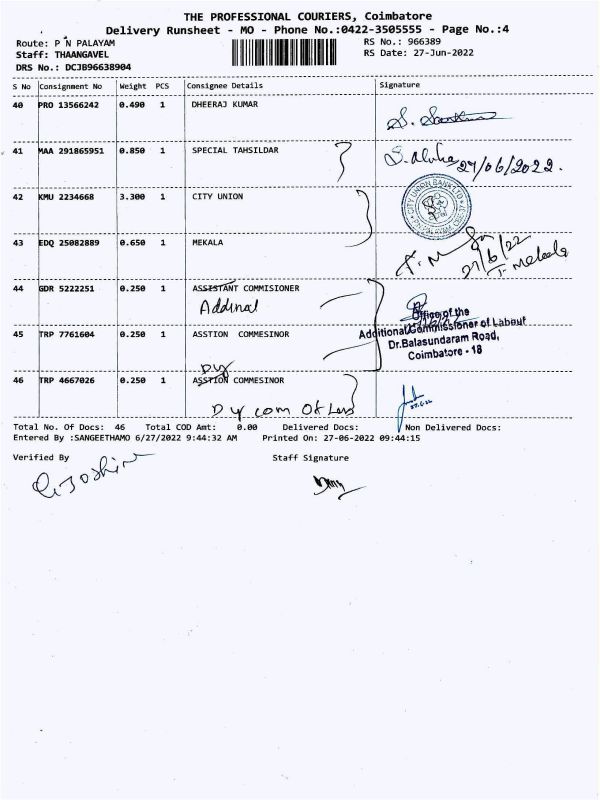 THE PROFESSIONAL COURIERS, Coimbatore
Delivery Runsheet - MO - Phone No.:0422-3505555 - Page No.:4
Route: P N PALAYAM
RS No.: 966389
Staff: THAANGAVEL
RS Date: 27-Jun-2022
DRS No.: DCJB96638904
S No Consignment No Weight PCS Consignee Details Signature
40 PRO 13566242 0.490 1 DHEERAJ KUMAR
41 MAA 291865951 0.850 1 SPECIAL TAHSILDAR
27/06/2022.
42 KMU 2234668 3.300 1 CITY UNION
CITY UNION BANK LTD
43 EDQ 25082889 0.650 1 MEKALA
27/6/22
T. Mekala
44 GDR 5222251 0.250 1 ASSISTANT COMMISIONER
Addinal
Office of the
Additional Commissioner of Labour
Dr.Balasundaram Road,
Coimbatore - 18
45 TRP 7761604 0.250 1 ASSTION COMMESINOR
Dy
46 TRP 4667026 0.250 1 ASSTION COMMESINOR
Dy com Of Lab
Total No. Of Docs: 46 Total COD Amt: 0.00 Delivered Docs: Non Delivered Docs:
Entered By :SANGEETHAMO 6/27/2022 9:44:32 AM Printed On: 27-06-2022 09:44:15
Verified By Staff Signature